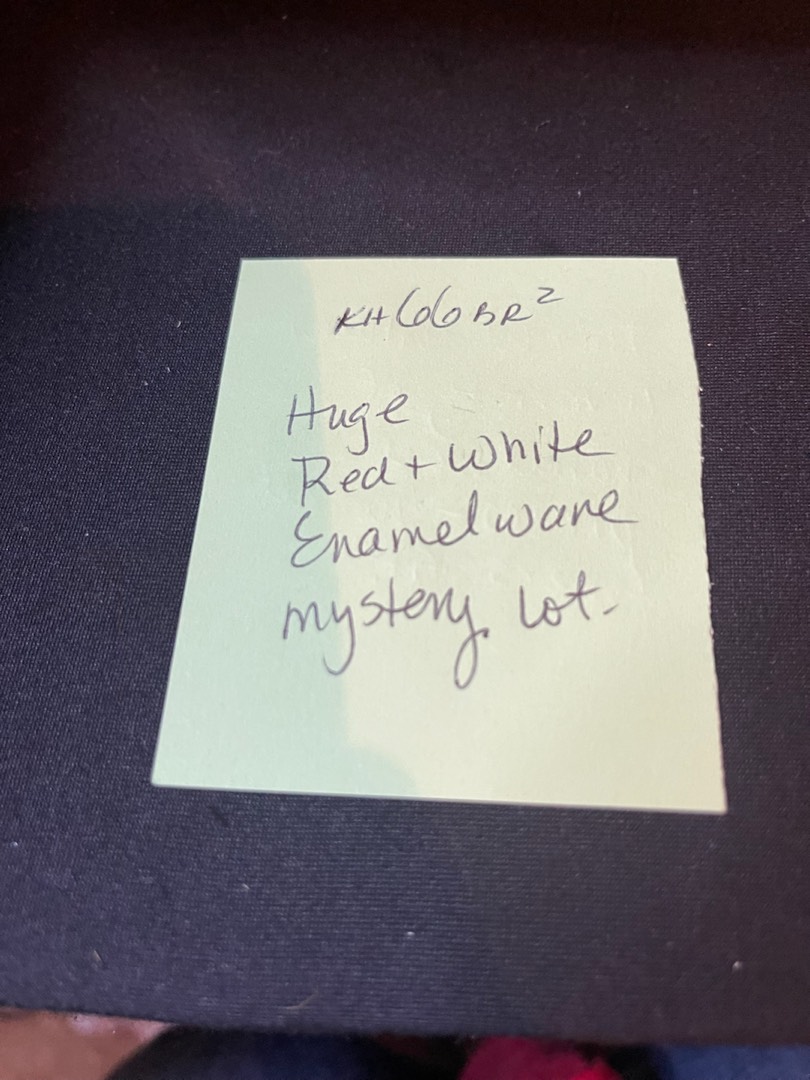 KH66BR²
Huge
Red + White
Enamelware
mystery lot.